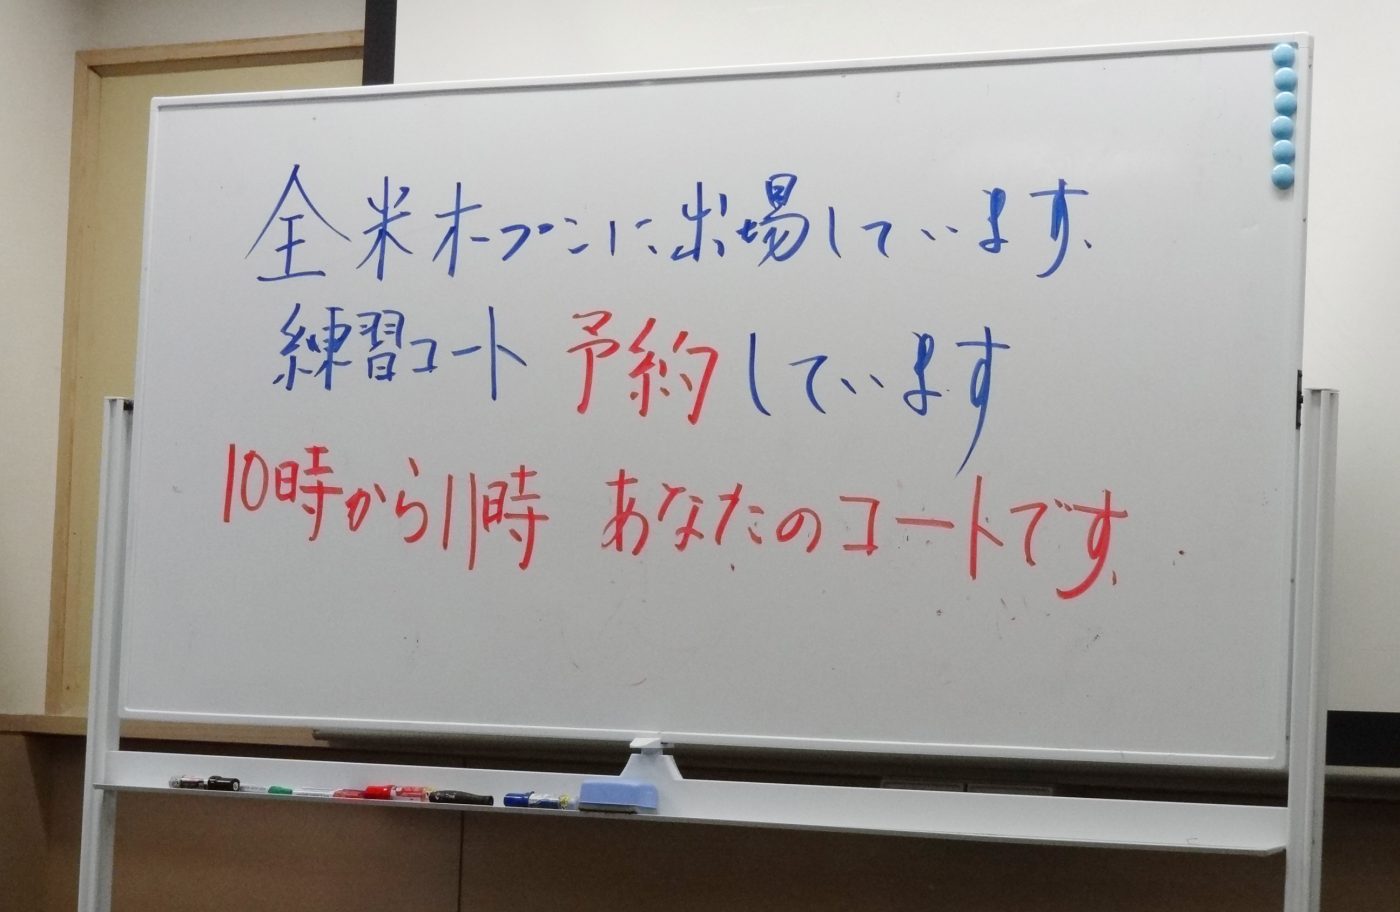 全米オープンに出場しています。
練習コート 予約しています
10時から11時 あなたのコートです。